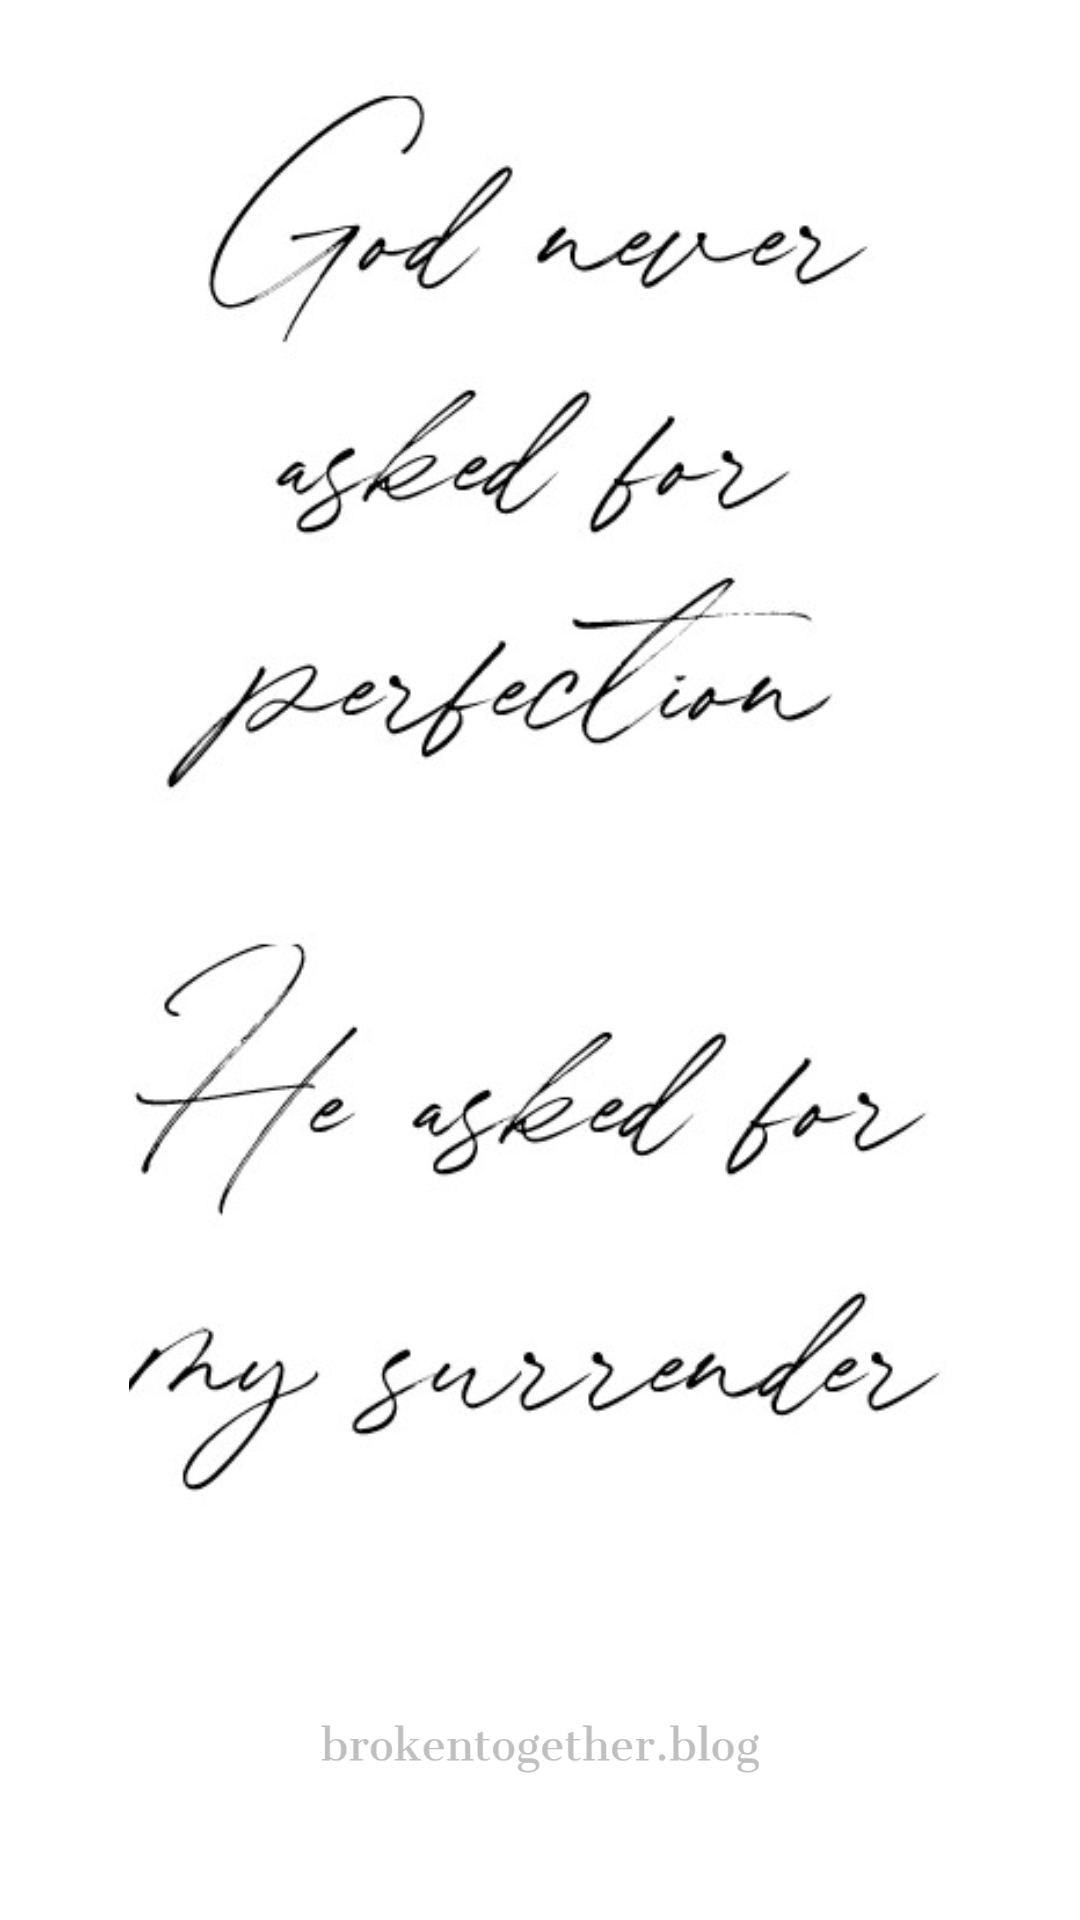 God never
asked for
perfection
He asked for
my surrender
brokentogether.blog